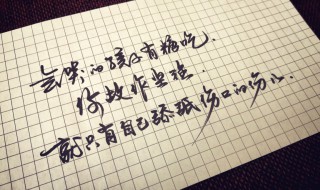 会哭的孩子有糖吃.
你故作坚强.
就只有自己舔舐伤口的份儿.